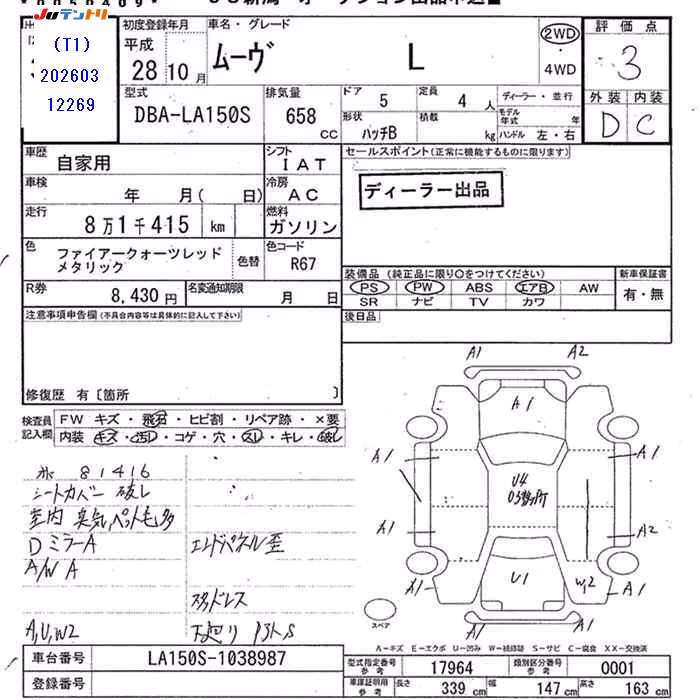 JUテントリ
(T1)
202603
12269
初度登録年月
平成
28 10 月
車名・グレード
ムーヴ
L
2WD
・
4WD
評価点
3
外装 内装
D C
型式
DBA-LA150S
排気量
658 cc
ドア 5
定員 4 人
ディーラー・並行
形状 ハッチB
積載 kg
モデル年式 年
ハンドル 左・右
車歴
自家用
シフト
IAT
セールスポイント(正常に機能するものに限ります)
ディーラー出品
車検
年 月( 日)
冷房
AC
走行
8万1千415 km
燃料
ガソリン
色
ファイアークォーツレッド
メタリック
色替
色コード
R67
装備品(純正品に限り○をつけてください)
新車保証書
PS PW ABS エアB AW
SR ナビ TV カワ
有・無
R券
8,430円
名変通知期限
月 日
後日品
注意事項申告欄(不具合内容等は具体的に記入して下さい)
修復歴 有〔箇所 〕
検査員
記入欄
FW キズ・飛石・ヒビ割・リペア跡・×要
内装 キズ・汚れ・コゲ・穴・スレ・キレ・破れ
81416
シートカバー 破れ
室内 臭気,ペット毛多
DミラーA
エンドパネル歪
A/W A
スタッドレス
A,U,W2
下廻り
A1 A2
A1
A1 A1
U4
A1 A2
U1
W,2
A1 A1
スペア
A-キズ E-エクボ U-凹み W-補修跡 S-サビ C-腐食 XX-交換済
車台番号
LA150S-1038987
登録番号
型式指定番号
参考
17964
類別区分番号
参考
0001
車庫証明用
参考
長さ 339 cm 幅 147 cm 高さ 163 cm